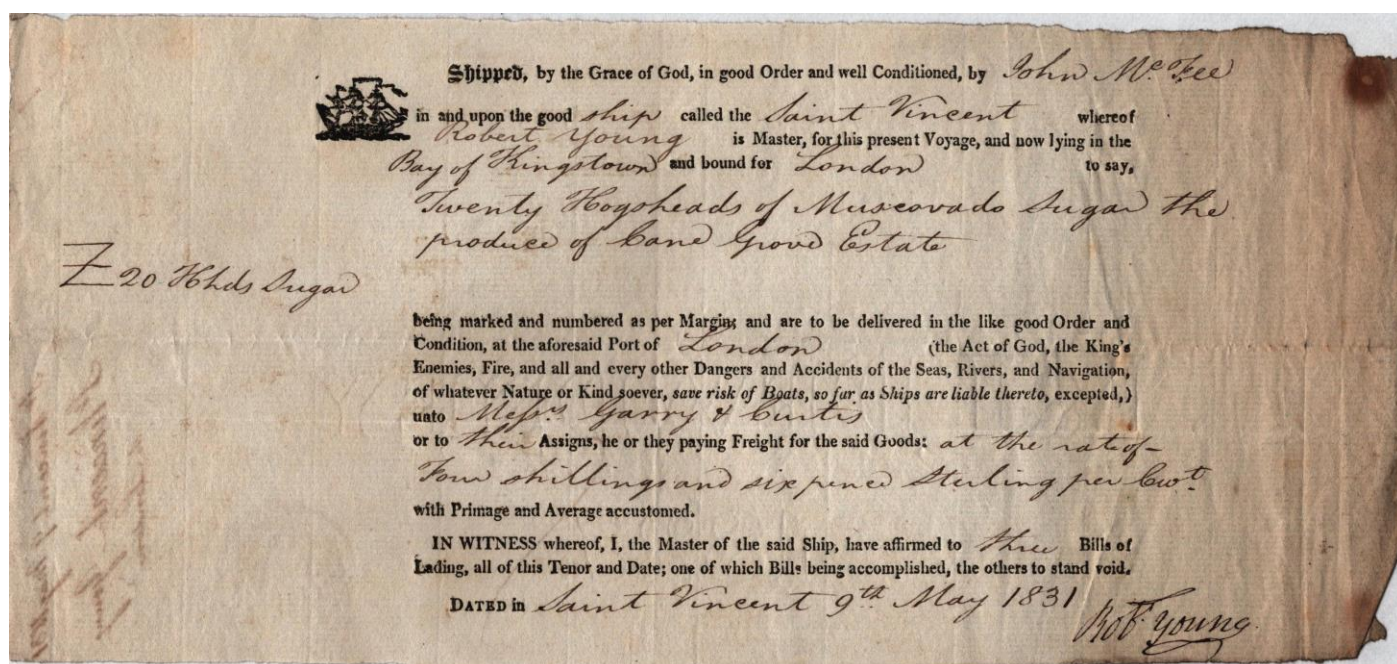 Shipped, by the Grace of God, in good Order and well Conditioned, by John McFee
in and upon the good ship called the Saint Vincent whereof
Robert Young is Master, for this present Voyage, and now lying in the
Bay of Kingstown and bound for London to say,
Twenty Hogsheads of Muscovado Sugar the
produce of Cane Grove Estate
20 Hhds Sugar
being marked and numbered as per Margin; and are to be delivered in the like good Order and
Condition, at the aforesaid Port of London (the Act of God, the King's
Enemies, Fire, and all and every other Dangers and Accidents of the Seas, Rivers, and Navigation,
of whatever Nature or Kind soever, save risk of Boats, so far as Ships are liable thereto, excepted,)
unto Messrs Garry & Curtis
or to their Assigns, he or they paying Freight for the said Goods: at the rate of
Four shillings and six pence Sterling per Cwt
with Primage and Average accustomed.
IN WITNESS whereof, I, the Master of the said Ship, have affirmed to three Bills of
Lading, all of this Tenor and Date; one of which Bills being accomplished, the others to stand void.
DATED in Saint Vincent 9th May 1831
Robt Young